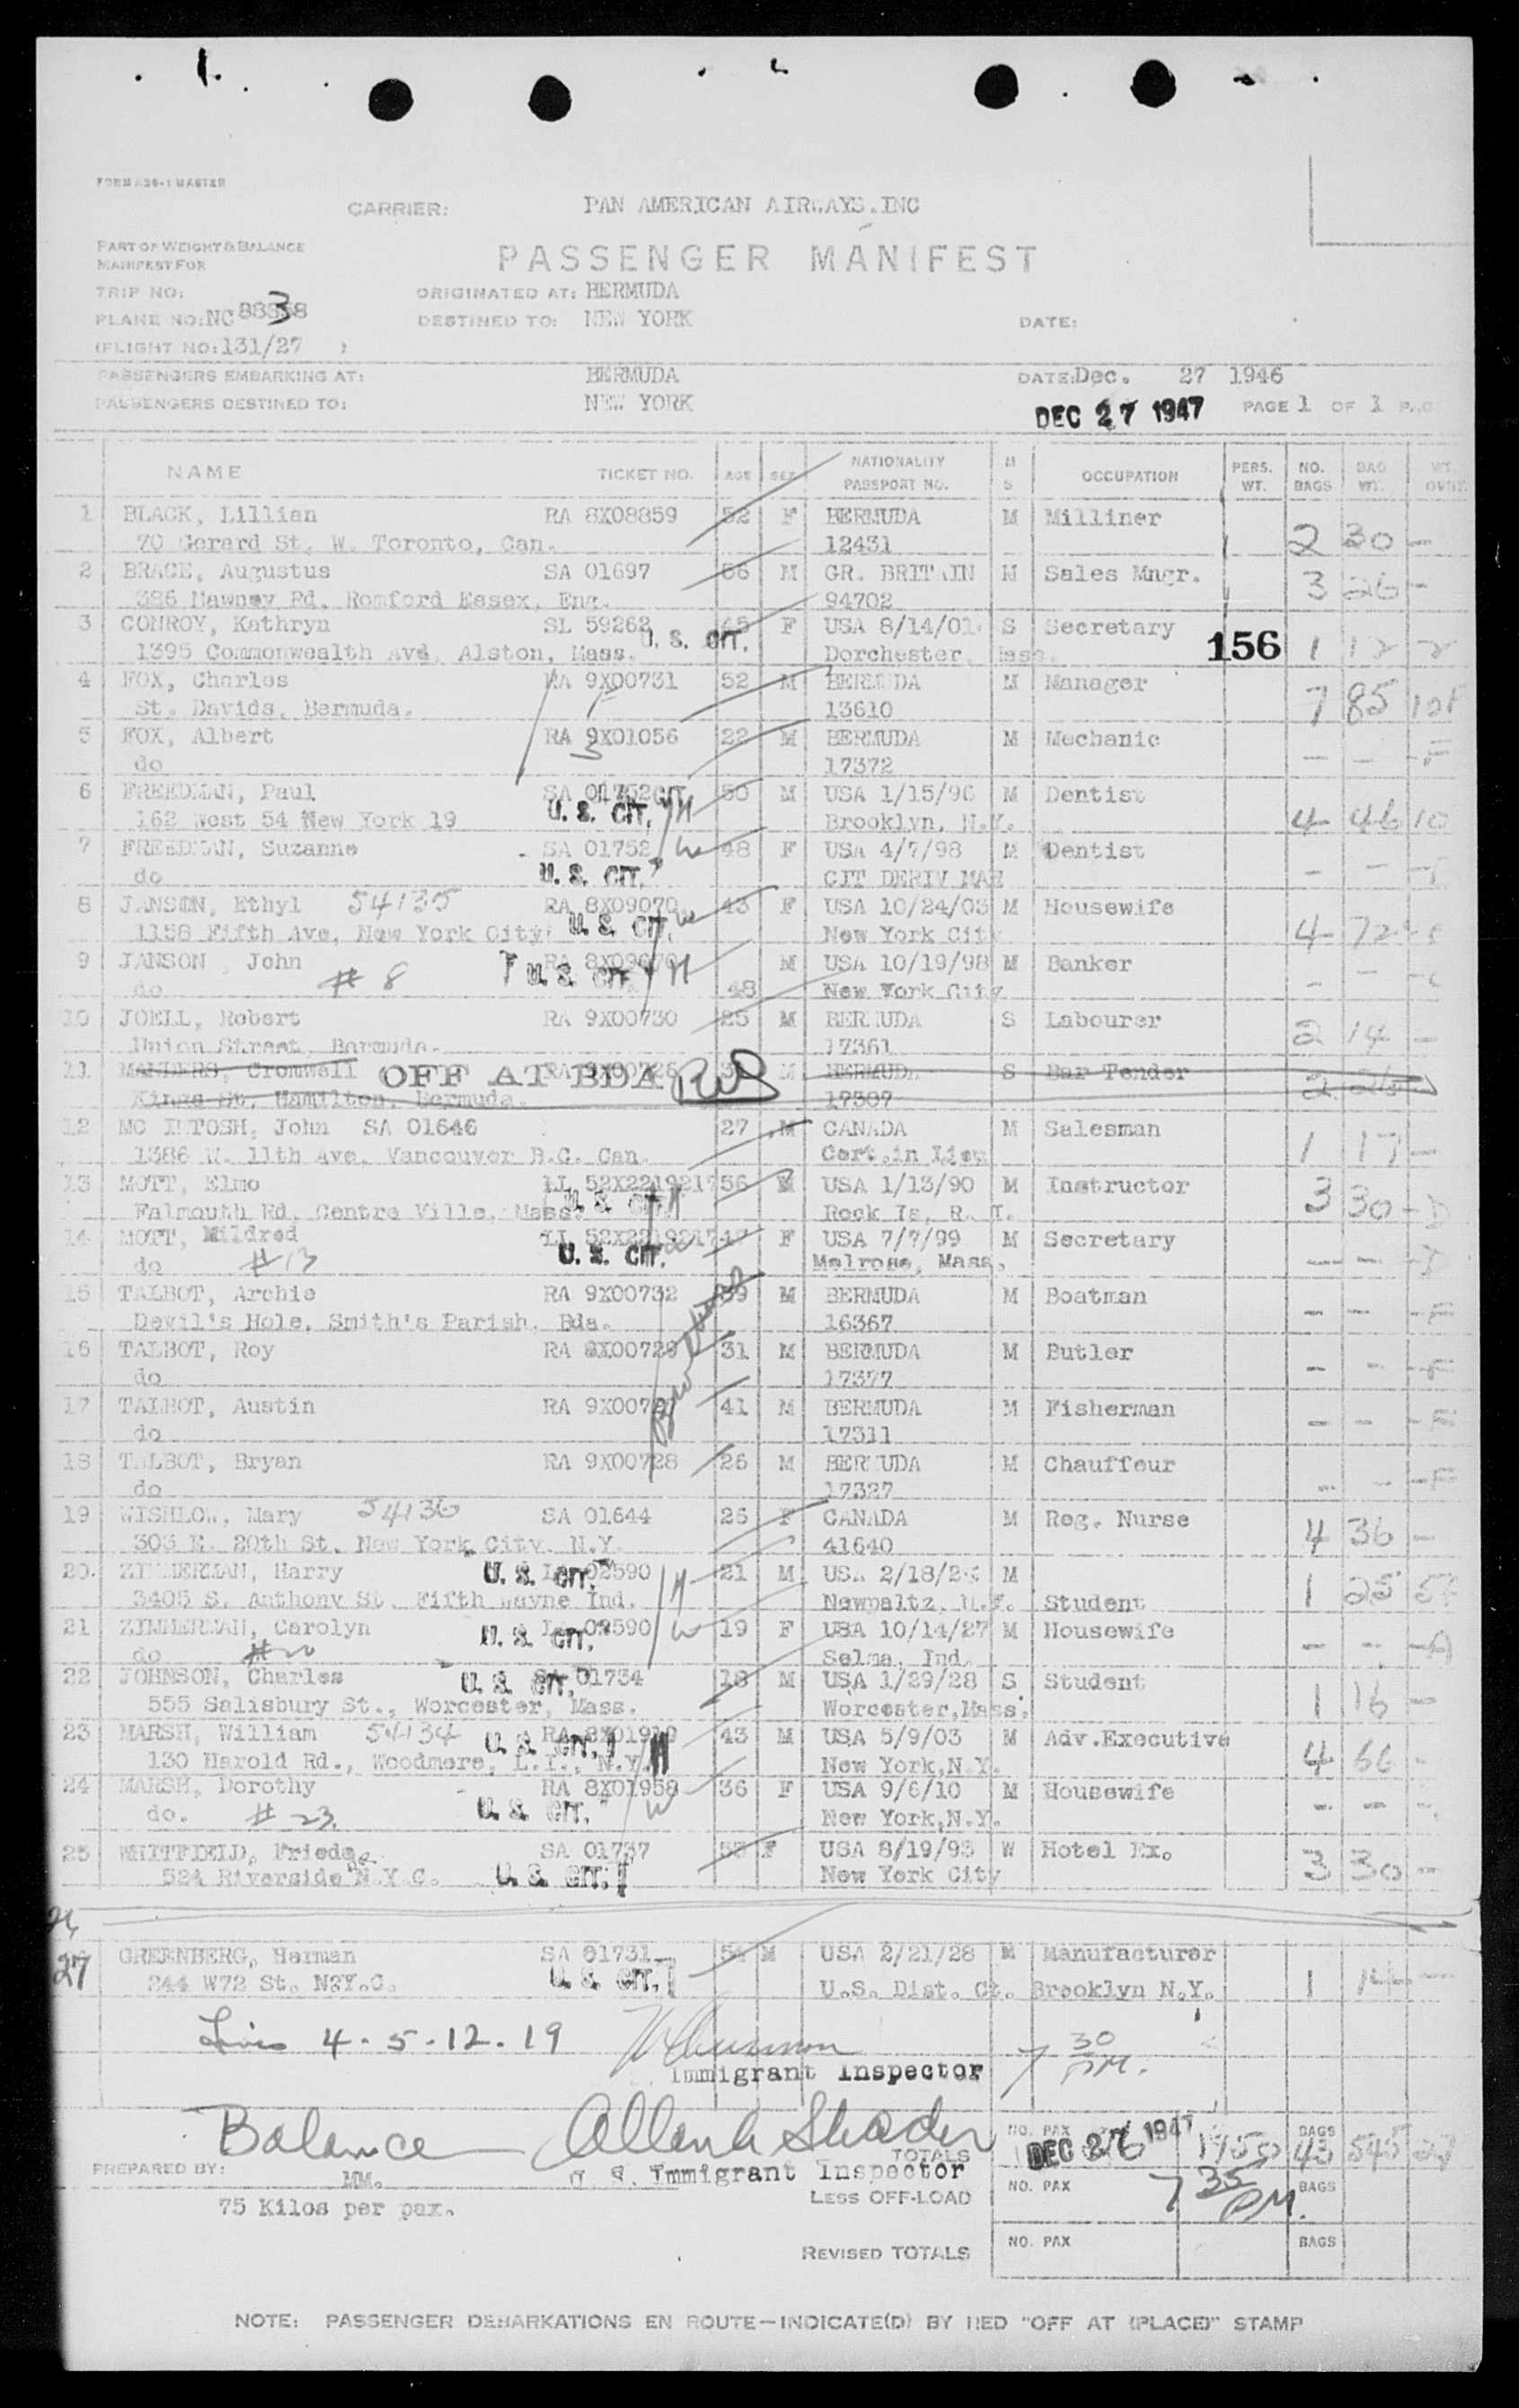 FORM A39-1 MASTER
CARRIER: PAN AMERICAN AIRWAYS.INC
PART OF WEIGHT & BALANCE
MANIFEST FOR
PASSENGER MANIFEST
TRIP NO:
ORIGINATED AT: BERMUDA
PLANE NO: NC 88
DESTINED TO: NEW YORK
DATE:
(FLIGHT NO: 131/27 )
PASSENGERS EMBARKING AT: BERMUDA DATE: Dec. 27 1946
PASSENGERS DESTINED TO: NEW YORK
DEC 27 1947 PAGE 1 OF 1
NAME TICKET NO. AGE SEX NATIONALITY PASSPORT NO. M S OCCUPATION PERS. WT. NO. BAGS BAG WT.
1 BLACK, Lillian RA 8X08859 52 F BERMUDA M Milliner
70 Gerard St, W. Toronto, Can. 12431 2 30 -
2 BRACE, Augustus SA 01697 56 M GR. BRITAIN M Sales Mngr.
386 Mawney Rd. Romford Essex, Eng. 94702 3 26 -
3 CONROY, Kathryn SL 59262 45 F USA 8/14/01 S Secretary
1395 Commonwealth Ave, Alston, Mass. U. S. CIT. Dorchester, Mass. 156 1 12 2
4 FOX, Charles RA 9X00731 52 M BERMUDA M Manager
St. Davids, Bermuda. 13610 7 85 10F
5 FOX, Albert RA 9X01056 22 M BERMUDA M Mechanic
do 17372 - - -F
6 FREEDMAN, Paul SA 01752 50 M USA 1/15/96 M Dentist
162 West 54 New York 19 U. S. CIT. H Brooklyn, N.Y. 4 46 10
7 FREEDMAN, Suzanne SA 01752 W 48 F USA 4/7/98 M Dentist
do U. S. CIT. CIT DERIV MAR
8 JANSON, Ethyl 54135 RA 8X09070 43 F USA 10/24/03 M Housewife
1158 Fifth Ave, New York City U. S. CIT. W New York City 4 72
9 JANSON, John RA 8X09070 M USA 10/19/98 M Banker
do # 8 U. S. CIT. H 48 New York City
10 JOELL, Robert RA 9X00730 25 M BERMUDA S Labourer
Union Street, Bermuda. 17361 2 14 -
11 MANDERS, Cromwell OFF AT BDA RA 9X00726 M BERMUDA S Bar Tender
Kings St, Hamilton, Bermuda. 17307 2 26
12 MC INTOSH, John SA 01646 27 M CANADA M Salesman
1386 W. 11th Ave, Vancouver B.C. Can. Cert.in Lieu 1 17 -
13 MOTT, Elmo LL 52X221921 56 M USA 1/13/90 M Instructor
Falmouth Rd, Centre Ville, Mass. U. S. CIT. H Rock Is, R. I. 3 30
14 MOTT, Mildred LL 52X221921 47 F USA 7/7/99 M Secretary
do # 13 U. S. CIT. Melrose, Mass.
15 TALBOT, Archie RA 9X00732 39 M BERMUDA M Boatman
Devil's Hole, Smith's Parish, Bda. 16367 - - -F
16 TALBOT, Roy RA 9X00729 31 M BERMUDA M Butler
do 17377 - - -F
17 TALBOT, Austin RA 9X0072 41 M BERMUDA M Fisherman
do 17311 - - -F
18 TALBOT, Bryan RA 9X00728 26 M BERMUDA M Chauffeur
do 17327 - - -F
19 WISHLOW, Mary 54136 SA 01644 26 F CANADA M Reg. Nurse
303 E. 20th St. New York City, N.Y. 41640 4 36 -
20. ZIMMERMAN, Harry U. S. CIT. 02590 21 M USA 2/18/2 M
3405 S. Anthony St. Fifth Wayne Ind. H Newpaltz, N.Y. Student 1 25
21 ZIMMERMAN, Carolyn U. S. CIT. 02590 W 19 F USA 10/14/27 M Housewife
do #20 Selma, Ind.
22 JOHNSON, Charles U. S. CIT. SA 01734 18 M USA 1/29/28 S Student
555 Salisbury St., Worcester, Mass. Worcester,Mass. 1 16 -
23 MARSH, William 54134 RA 8X01910 43 M USA 5/9/03 M Adv.Executive
130 Harold Rd., Woodmere, L.I., N.Y. U. S. CIT. H New York,N.Y. 4 66 -
24 MARSH, Dorothy RA 8X01958 36 F USA 9/6/10 M Housewife
do. # 23. U. S. CIT. W New York,N.Y.
25 WHITFIELD, Frieda SA 01737 53 F USA 8/19/93 W Hotel Ex.
524 Riverside N.Y.C. U. S. CIT. New York City 3 30 -
26
27 GREENBERG, Herman SA 01731 54 M USA 2/21/28 M Manufacturer
244 W72 St. N.Y.C. U. S. CIT. U.S. Dist. Ct. Brooklyn N.Y. 1 14 -
4-5-12-19
7 30 P.M.
Immigrant Inspector
Balance
NO. PAX DEC 27 1947 BAGS 43 545
TOTALS
PREPARED BY: MM.
U. S. Immigrant Inspector
75 Kilos per pax.
LESS OFF-LOAD NO. PAX 7 35 PM. BAGS
REVISED TOTALS NO. PAX BAGS
NOTE: PASSENGER DEBARKATIONS EN ROUTE—INDICATE(D) BY RED "OFF AT (PLACE)" STAMP